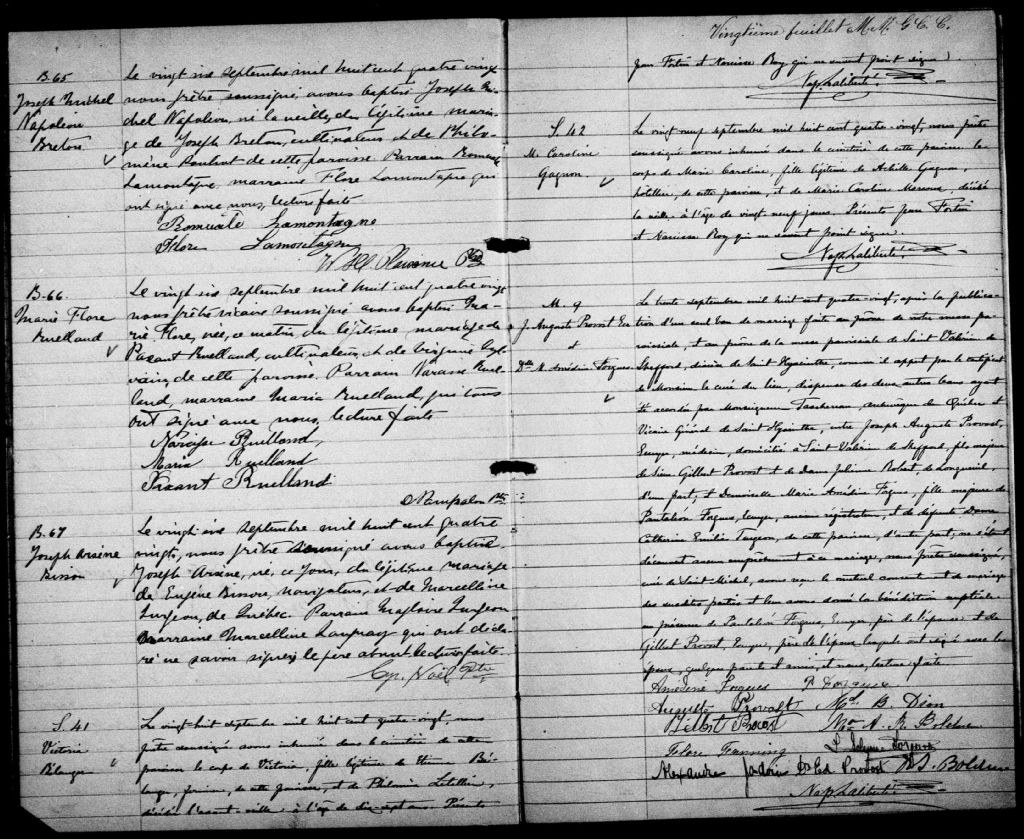 B.65
Joseph Michel
Napoléon
Breton
Le vingt six septembre mil huit cent quatre vingt
nous prêtre soussigné, avons baptisé Joseph Mi-
chel Napoléon, né la veille, du légitime maria-
ge de Joseph Breton, cultivateur, et de Philo-
mène de cette paroisse. Parrain Romuald
Lamontagne, marraine Flore Lamontagne qui
ont signé avec nous, lecture faite
Romuald Lamontagne
Flore Lamontagne
B-66.
Marie Flore
Ruelland
Le vingt six septembre mil huit cent quatre vingt
nous prêtre vicaire soussigné avons baptisé Ma-
rie Flore, née, ce matin du légitime mariage de
Paxant Ruelland, cultivateur, et de Virginie
de cette paroisse. Parrain Narcisse Ruel-
land, marraine Maria Ruelland, qui tous
ont signé avec nous, lecture faite
Narcisse Ruelland,
Maria Ruelland
Paxant Ruelland
B.67
Joseph Arsène
Le vingt six septembre mil huit cent quatre
vingt, nous prêtre soussigné avons baptisé
Joseph Arsène, né, ce jour, du légitime mariage
de Eugène navigateur, et de Marcelline
Turgeon, de Québec. Parrain Magloire Turgeon
marraine Marcelline qui ont décla-
ré ne savoir signer, le père absent. lecture faite.
Cyr. Noël Ptre
S.41
Victoria
Bélanger
Le vingt-huit septembre mil huit cent quatre-vingt, nous
prêtre soussigné avons inhumé dans le cimetière de cette
paroisse le corps de Victoria, fille légitime de Étienne Bé-
langer, de cette paroisse, et de Philomène Letellier,
décédée l'avant-veille à l'âge de dix-sept ans. Présents
Vingtième feuillet M. M. G. C. C.
Jean Fortin et Narcisse Roy qui ne savent point signer.
Nap. Laliberté
S.42
M. Caroline
Gagnon.
Le vingt neuf septembre mil huit cent quatre-vingt, nous prêtre
soussigné avons inhumé dans le cimetière de cette paroisse le
corps de Marie Caroline, fille légitime de Achille Gagnon,
hôtellier, de cette paroisse, et de Marie Caroline décédée
la veille, à l'âge de vingt-neuf jours. Présents Jean Fortin
et Narcisse Roy qui ne savent point signer.
Nap. Laliberté
M. 9
J. Auguste Provost
et
Dlle M. Amédine Forgues
Le trente septembre mil huit cent quatre-vingt, après la publica-
tion d'un seul ban de mariage faite au prône de notre messe pa-
roissiale, et au prône de la messe paroissiale de Saint Valérien de
Shefford, diocèse de Saint Hyacinthe, comme il appert par le certificat
de Monsieur le curé du lieu, dispense des deux autres bans ayant
été accordée par Monseigneur Taschereau, archevêque de Québec et
Vicaire Général de Saint Hyacinthe, entre Joseph Auguste Provost,
Ecuyer, médecin, domicilié à Saint Valérien de Shefford, fils majeur
de Sieur Gilbert Provost et de Dame Julienne de Longueuil,
d'une part; et Demoiselle Marie Amédine Forgues, fille majeure de
Pantaléon Forgues, Ecuyer, ancien registrateur, et de défunte Dame
Catherine Emilie Turgeon, de cette paroisse, d'autre part, ne s'étant
découvert aucun empêchement à ce mariage, nous prêtre soussigné,
curé de Saint Michel, avons reçu le mutuel consentement de mariage
des susdites parties et leur avons donné la bénédiction nuptiale
en présence de Pantaléon Forgues, Ecuyer, père de l'épouse, et de
Gilbert Provost, Ecuyer, père de l'époux, lesquels ont signé avec les
époux, quelques parents et amis, et nous, lecture faite
Amédine Forgues P. Forgues
Auguste Provost B. Dion
Gilbert Provost
Flore Fanning
Alexandre Jodoin Ed Provost
Nap. Laliberté